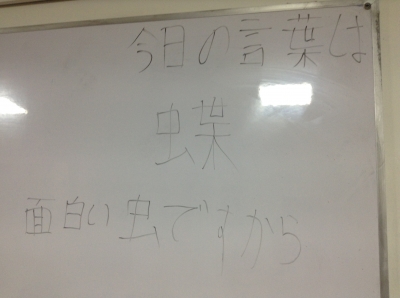 今日の言葉は
蝶
面白い虫ですから